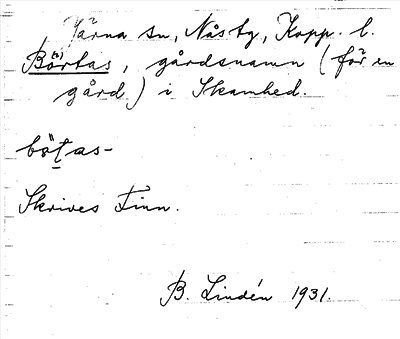 Järna sn, Nås tg, Kopp. l.
Börtas, gårdsnamn (för en
gård) i Skamhed.
bö̀t̠as-
Skrives Finn.
B. Lindén 1931.